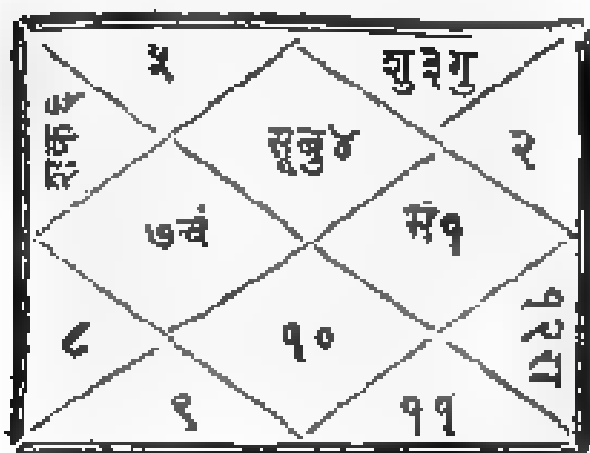 ५
शु३गु
श के ६
सूबु४
२
७चं
मं१
८
१०
१२रा
९
११